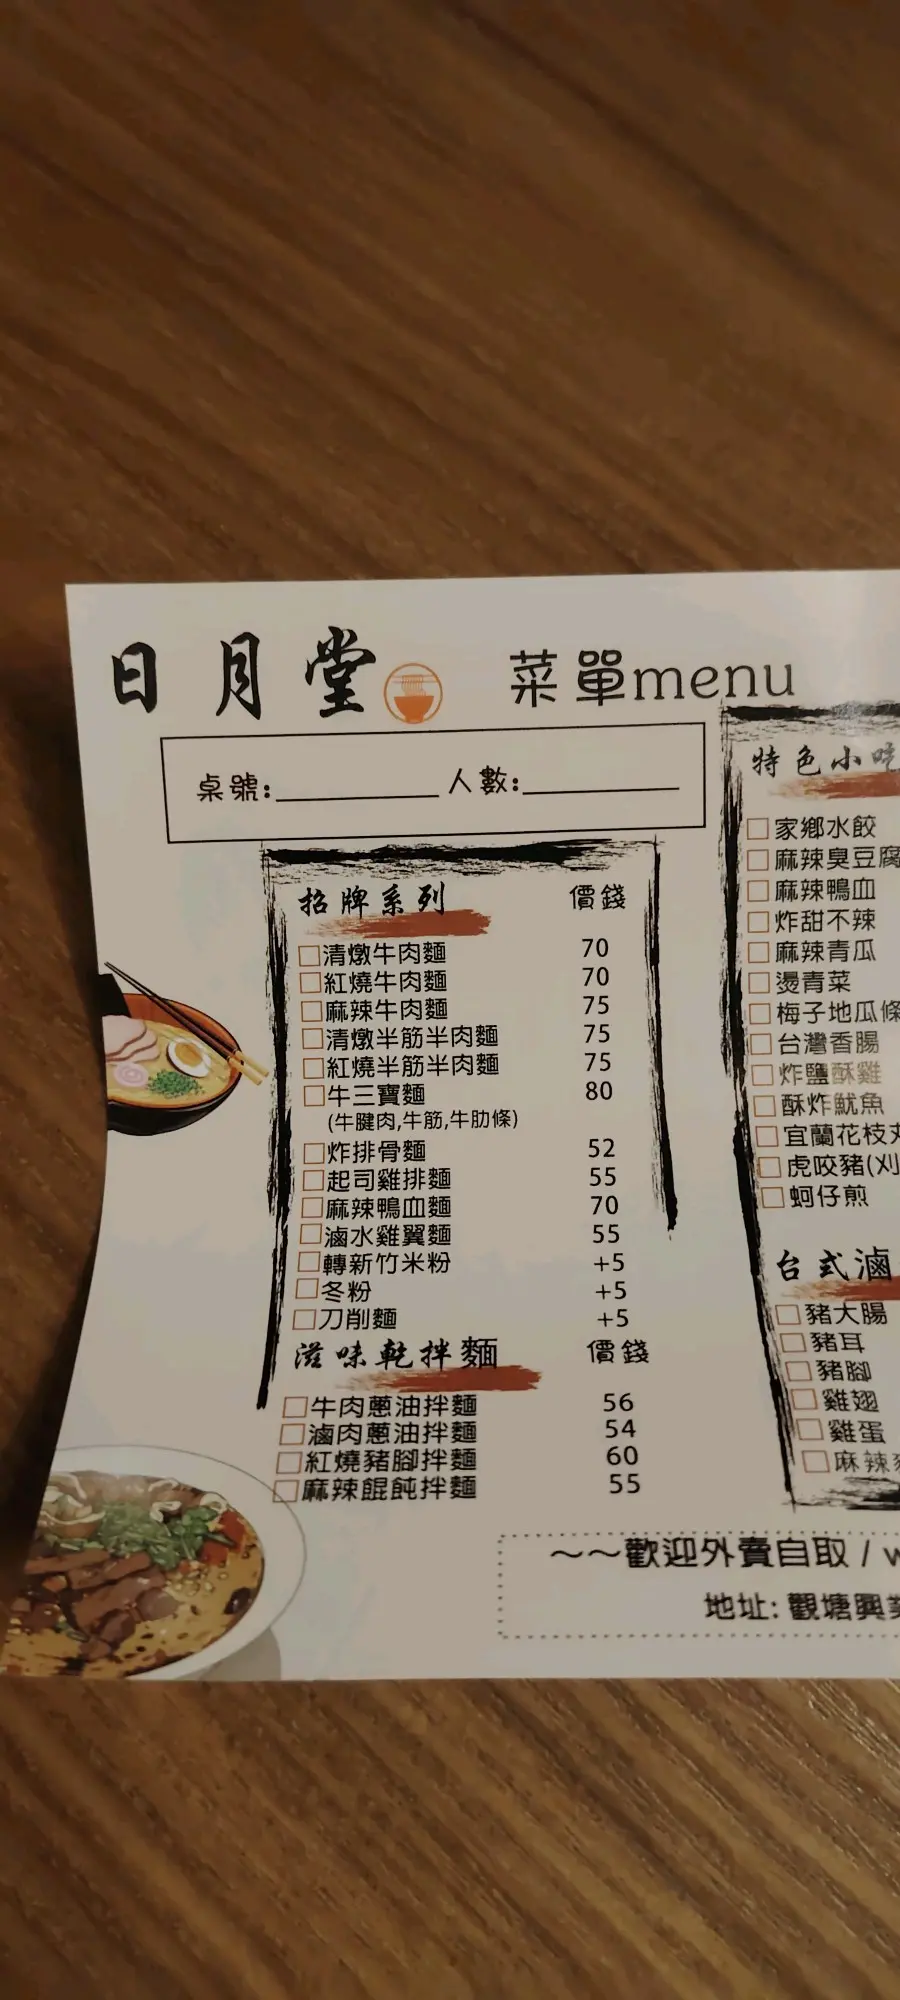 日月堂 菜單menu
桌號: 人數:
招牌系列 價錢
清燉牛肉麵 70
紅燒牛肉麵 70
麻辣牛肉麵 75
清燉半筋半肉麵 75
紅燒半筋半肉麵 75
牛三寶麵 80
(牛腱肉,牛筋,牛肋條)
炸排骨麵 52
起司雞排麵 55
麻辣鴨血麵 70
滷水雞翼麵 55
轉新竹米粉 +5
冬粉 +5
刀削麵 +5
滋味乾拌麵 價錢
牛肉蔥油拌麵 56
滷肉蔥油拌麵 54
紅燒豬腳拌麵 60
麻辣餛飩拌麵 55
特色小吃
家鄉水餃
麻辣臭豆腐
麻辣鴨血
炸甜不辣
麻辣青瓜
燙青菜
梅子地瓜條
台灣香腸
炸鹽酥雞
酥炸魷魚
宜蘭花枝丸
虎咬豬(刈
蚵仔煎
台式滷
豬大腸
豬耳
豬腳
雞翅
雞蛋
麻辣
~~歡迎外賣自取 / w
地址: 觀塘興業